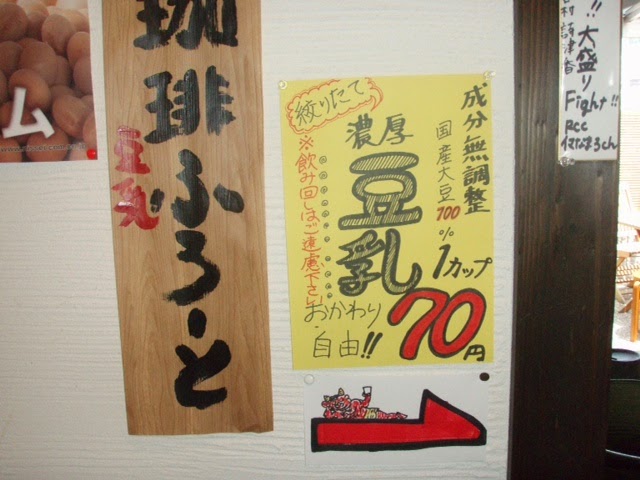 ム
珈琲ふろーと
豆乳
成分無調整
国産大豆100%
濃厚
豆乳
絞りたて
1カップ
70円
※飲み回しはご遠慮下さい
おかわり
自由!!
!!大盛り
Fight!!
RCC